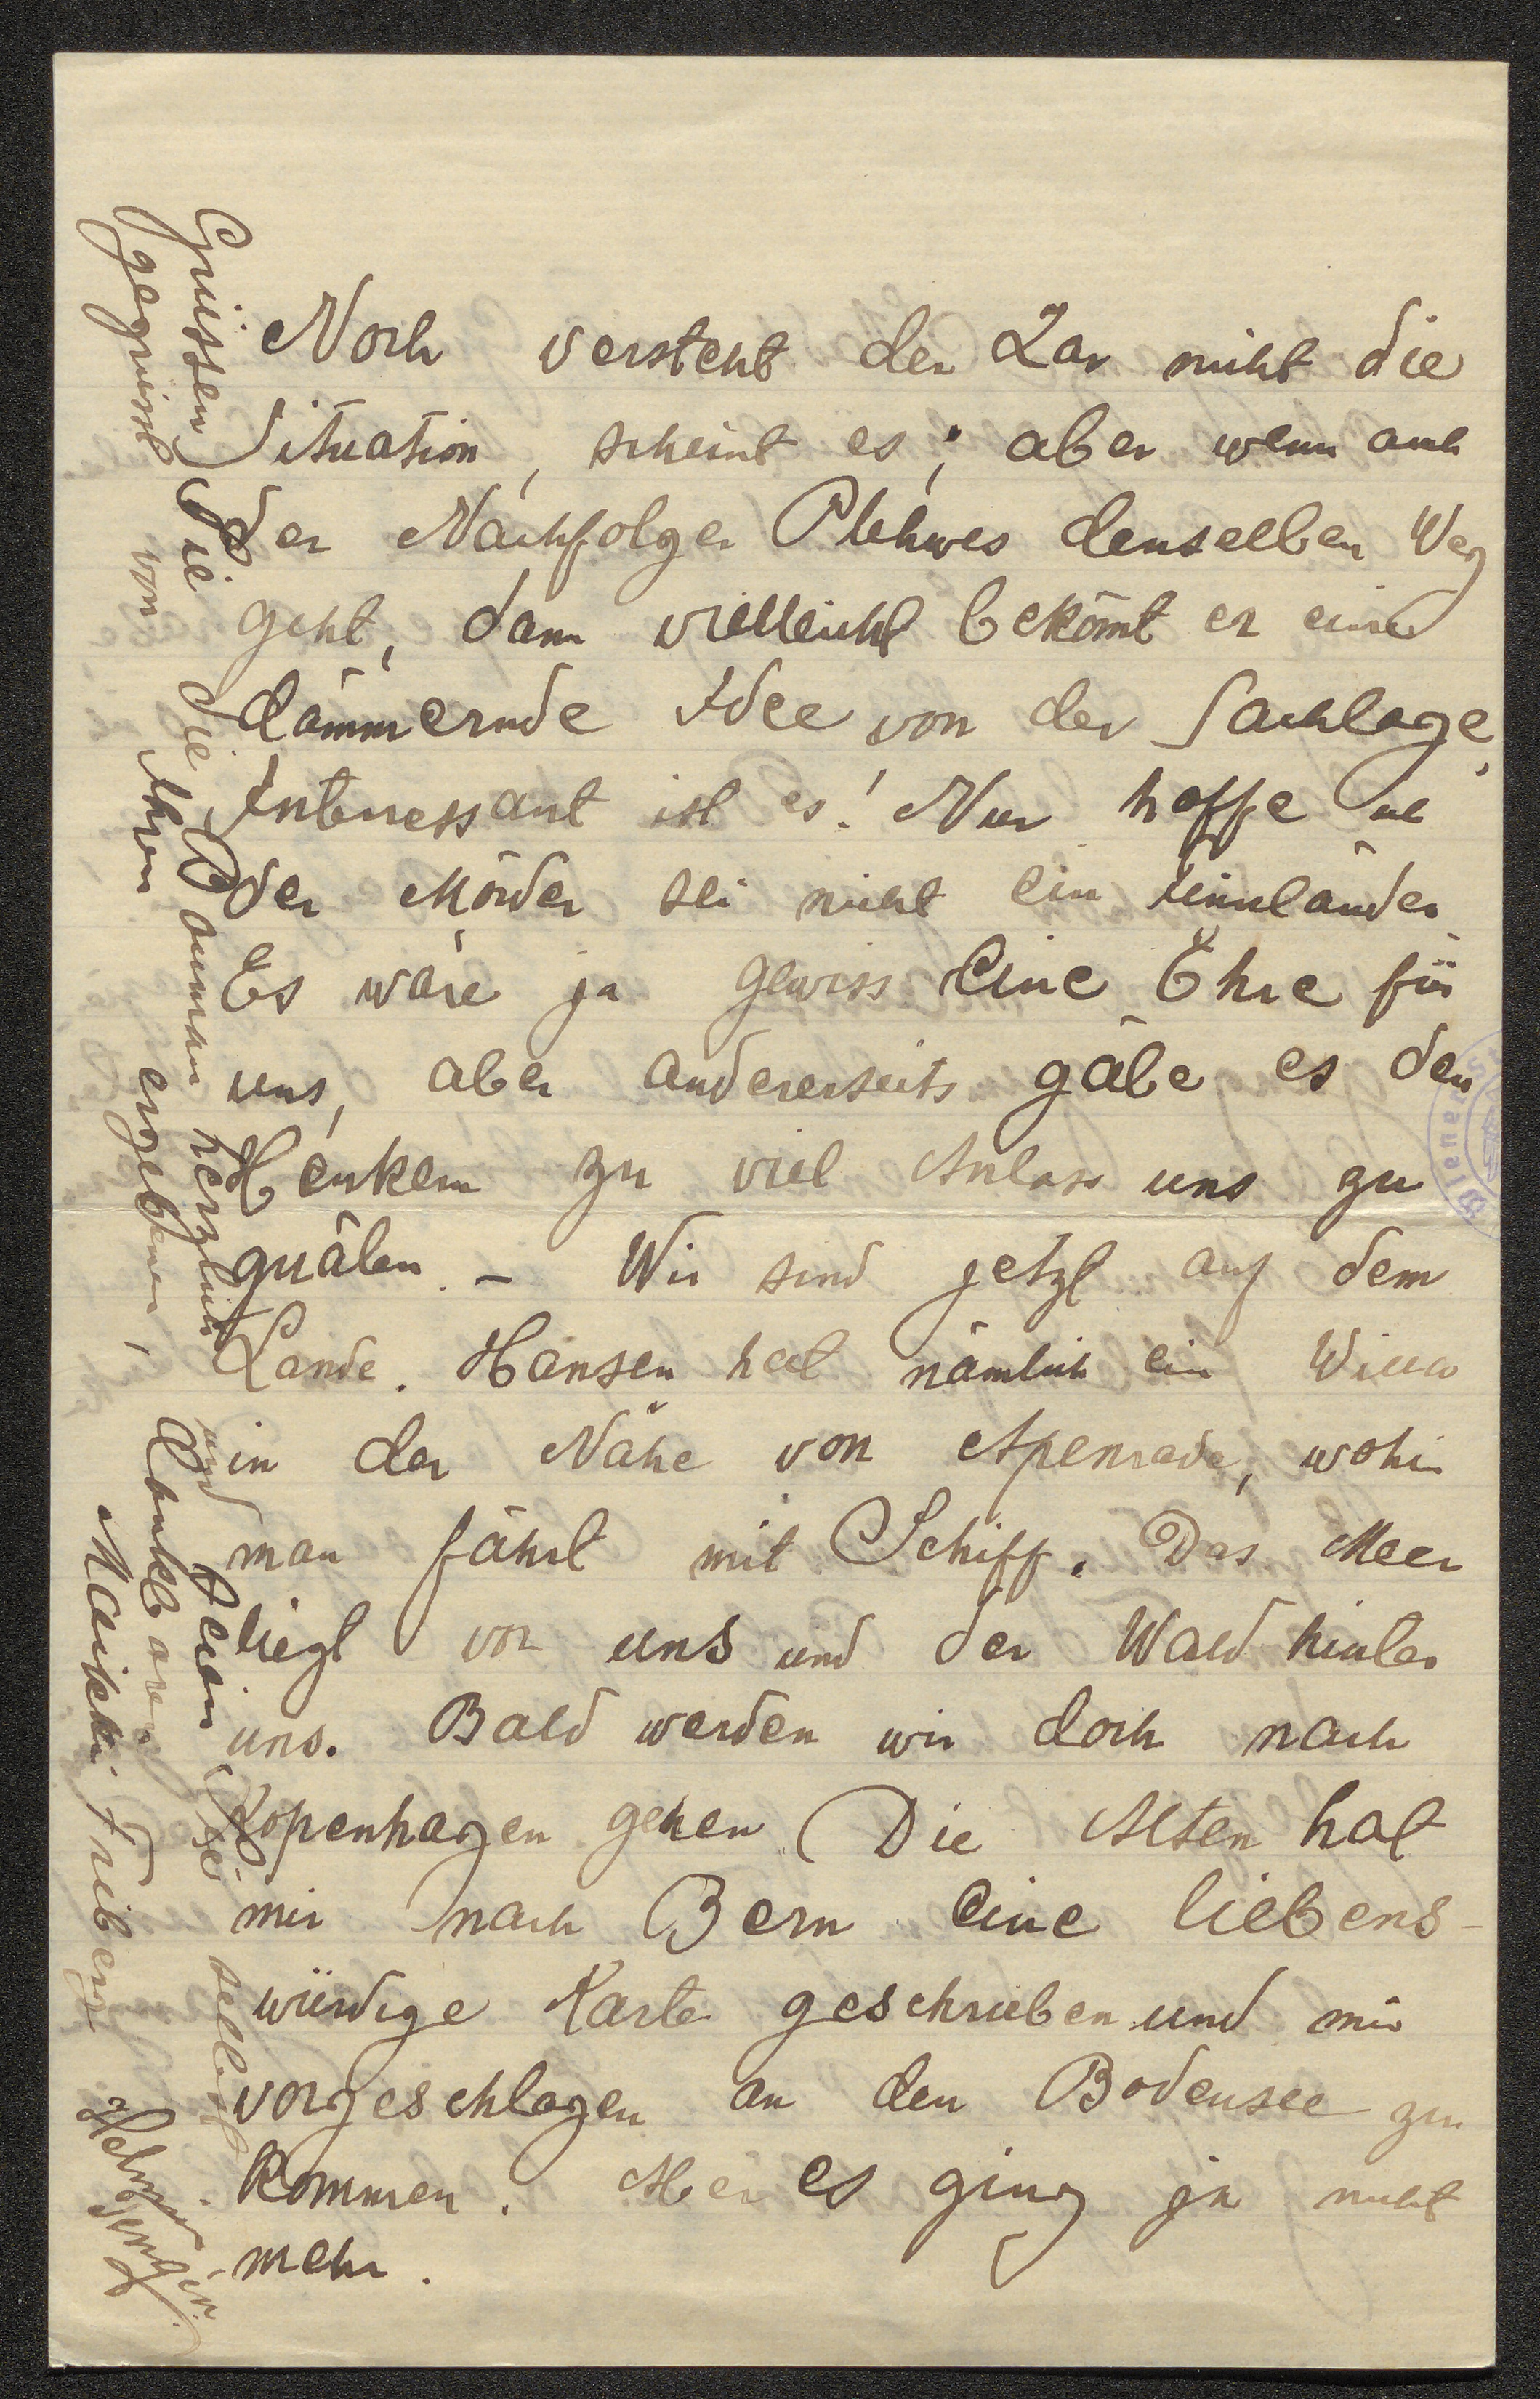 Noch versteht der Zar nicht die
Situation, scheint es; aber wenn auch
der Nachfolger Plehwes denselben Weg
geht, dann vielleicht bekom̄t er eine
dämmernde Idee von der Sachlage.
Interessant ist es! Nur hoffe ich
der Mörder sei nicht ein Finnländer.
Es wäre ja gewiss eine Ehre für
uns, aber andererseits gäbe es den
Henkern zu viel Anlass uns zu
quälen. – Wir sind jetzt auf dem
Lande. Hansen hat nämlich ein Willa
in der Nähe von Apenrade, wohin
man fährt mit Schiff. Das Meer
liegt vor uns und der Wald hinter
uns. Bald werden wir doch nach
Kopenhagen gehen. Die Alten hat
mir nach Bern eine liebens-
würdige Karte geschrieben und mir
vorgeschlagen an den Bodensee zu
kommen. Aber es ging ja nicht
mehr.
Grüssen Sie die Damen herzlich und seien Sie selbst
gegrüsst von Ihren ergebenen, dankbaren
Maikki Friberg